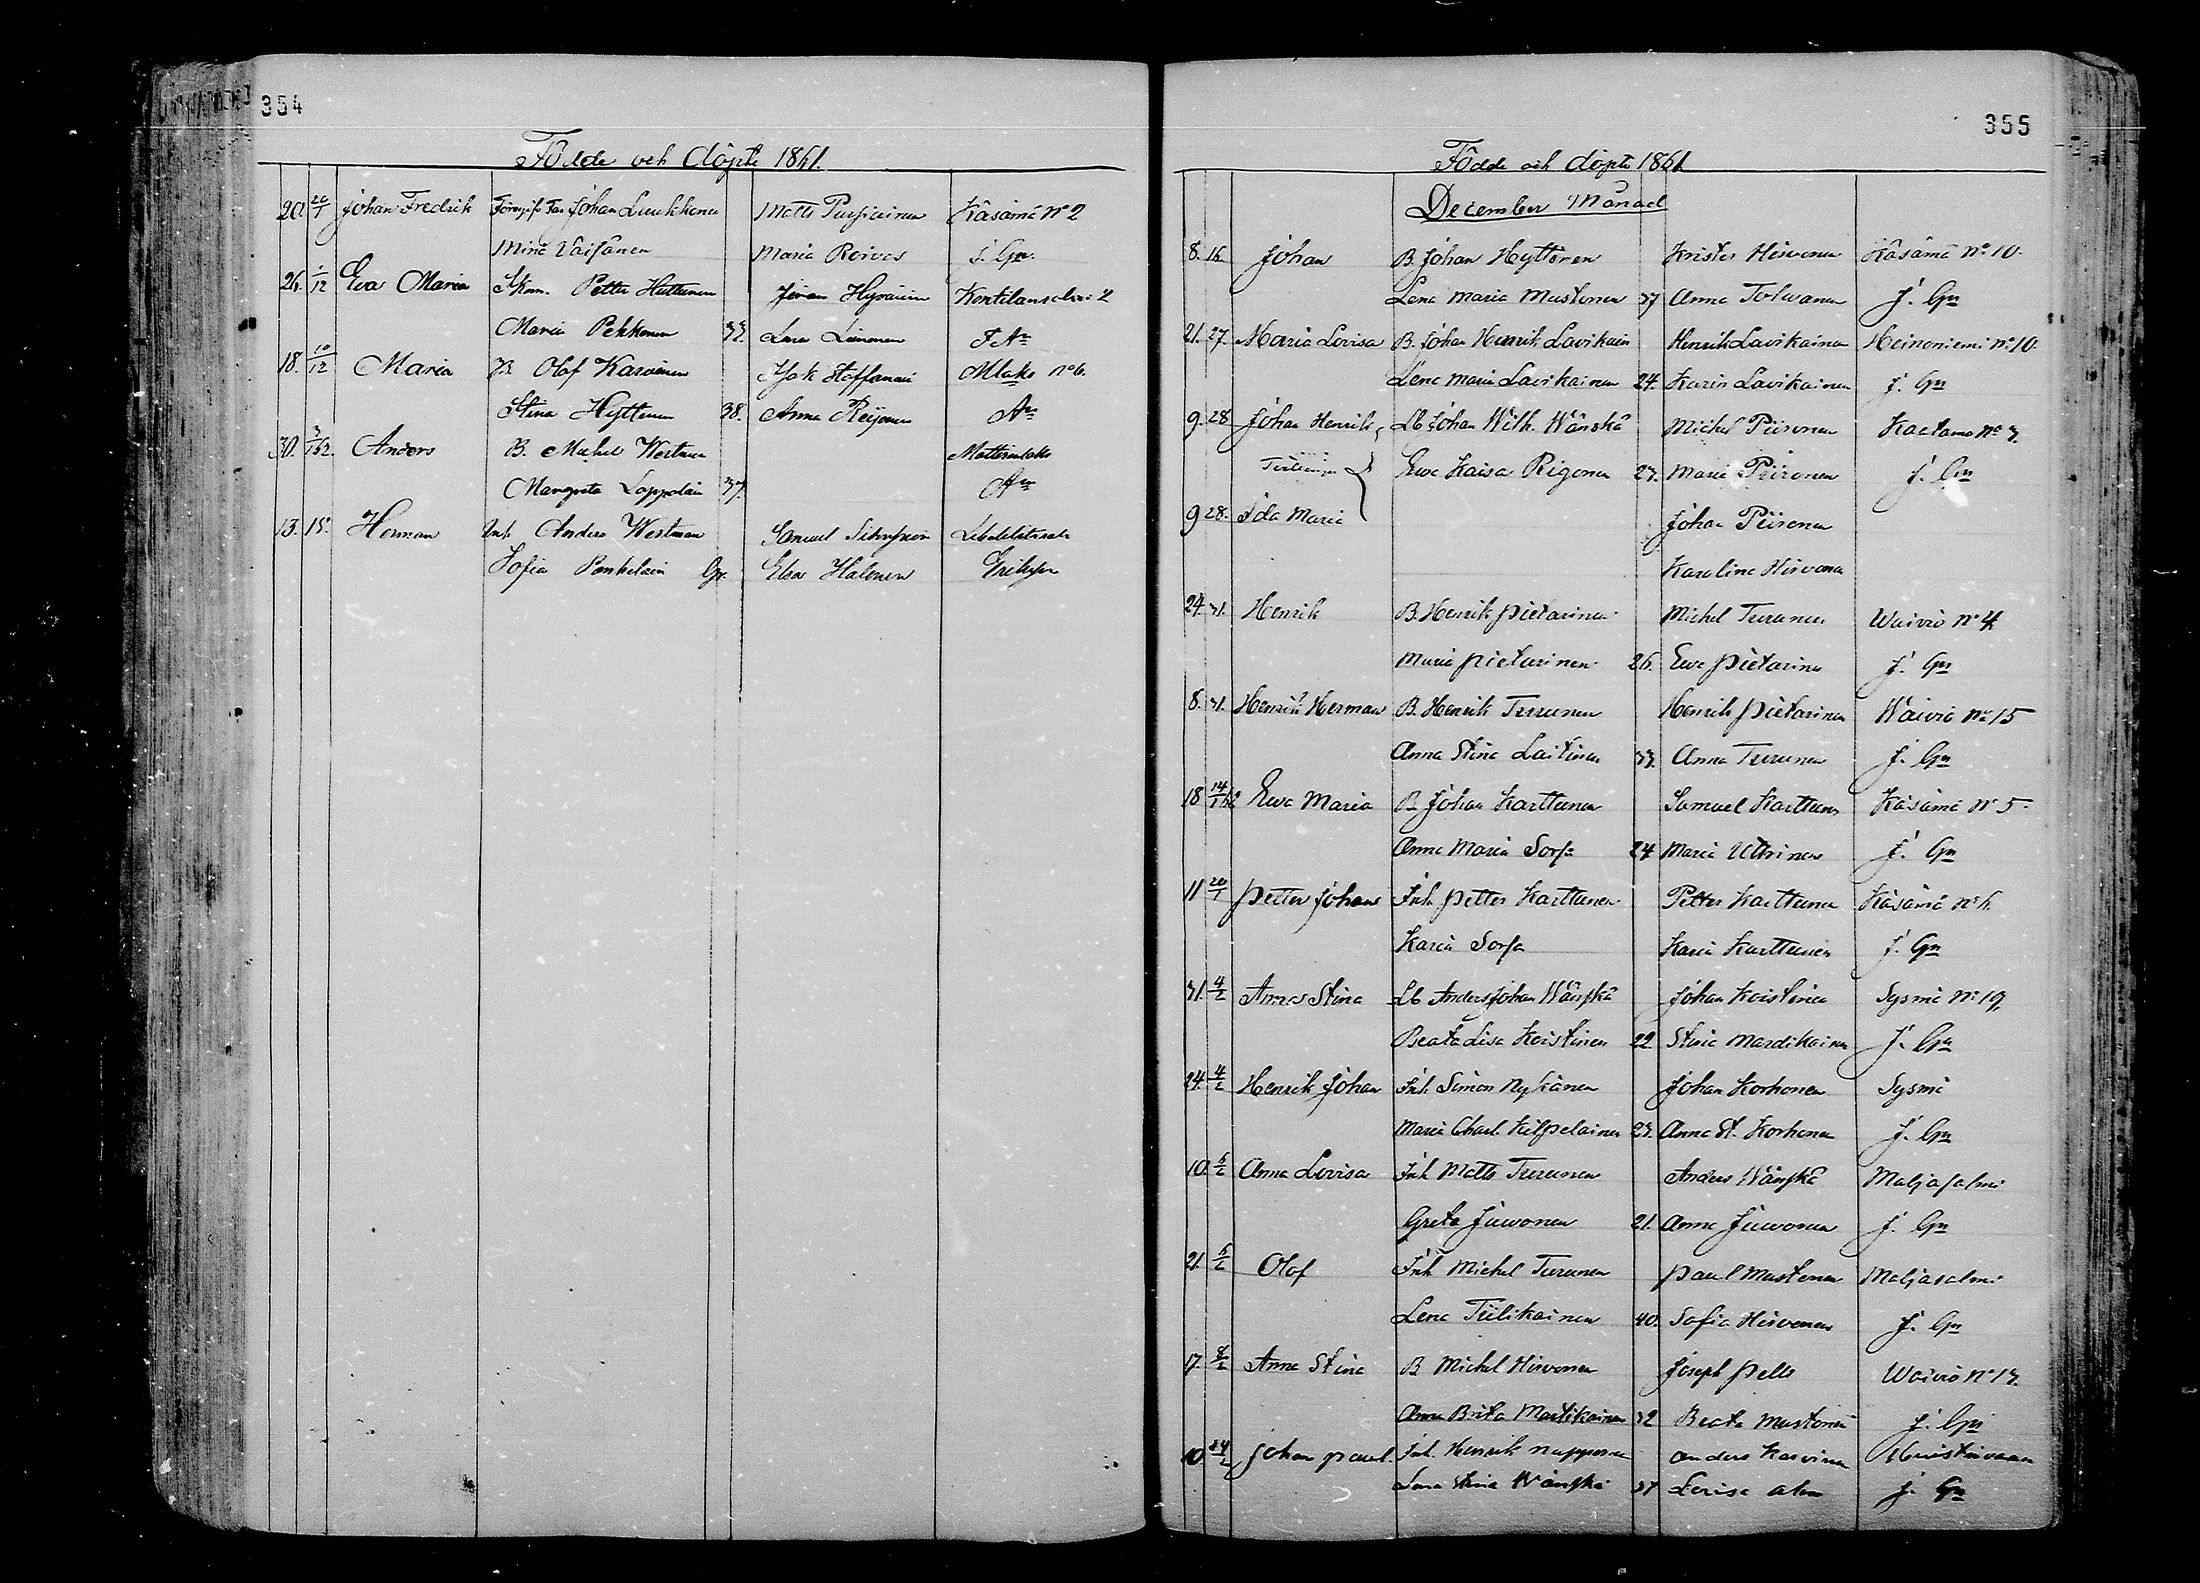 354
Födde och döpte 1861.
20. 20/1 Johan Fredrik Johan Luukkonen Matts Pursiainen Käsämä No 2
Mina Väisänen Maria Roivas J. Gn
26. 1/12 Eva Maria Petter Huttunen Kontilanselkä 2
Maria Pekkonen 33. Lena
18. 10/12 Maria B. Olof Karvinen Isak No 6.
Stina Hyttinen 38. Anna Reijonen An
30. 3/1 62. Anders B. Michel Westman
Margreta Loppolain 37. An
13. 15. Herman Inh. Anders Westman Samuel
Sofia Pankelain Gr. Elsa Halonen
355
Födde och döpte 1861
December Månad
8. 16 Johan B. Johan Hyttinen Krister Hirvonen Käsämä No 10.
Lena Maria Mustonen 37 Anna Tolwanen J. Gn
21. 27. Maria Lovisa B. Johan Henrik Lavikain Henrik Lavikainen Heinoniemi No 10.
Lena Maria Lavikainen 24. Karin Lavikainen J. Gn
9. 28 Johan Henrik Lb Johan Wilh. Wänskä Michel Piironen Kaatamo No 3.
Tvillingar Ewa Kaisa Rigonen 23. Maria Piironen J. Gn
9 28. Ida Maria Johan Piironen
Karolina Hirvonen
24. 31. Henrik B. Henrik Pietarinen Michel Turunen Waivio No 4
Maria Pietarinen 26. Ewa Pietarinen J. Gn
8. 31. Henrik Herman B. Henrik Turunen Henrik Pietarinen Waivio No 15
Anna Stina Laitinen 33. Anna Turunen J. Gn
18 14/1 62 Ewa Maria B. Johan Karttunen Samuel Karttunen Käsämä No 5.
Anna Maria Sorsa 24 Maria J. Gn
11 20/1 Petter Johan Inh. Petter Karttunen Petter Karttunen Käsämä No 6.
Karin Sorsa Karin Karttunen J. Gn
31. 4/2 Anna Stina Lb Anders Johan Wänskä Johan Koistinen Sysmä No 19.
Beata Lisa Koistinen 22. Stina Mardikainen J. Gn
24. 4/2 Henrik Johan Inh. Simon Nykänen Johan Korhonen Sysmä
Maria Charl. Kilpelainen 23. Anna St. Korhonen J. Gn
10. 6/2 Anna Lovisa Inh Matts Turunen Anders Wänskä Maljasalmi
Greta Juvonen 21. Anna Juvonen J. Gn
21. 6/2 Olof Inh Michel Turunen Paul Mustonen Maljasalmi
Lena Tiilikainen 40. Sofia Hirvonen J. Gn
17. 8/2 Anna Stina B Michel Hirvonen Joseph Pelle Waivio No 13.
Anna Brita Martikainen 32 Beata Mustonen J. Gn
10 24/2 Johan Paul. Inh. Henrik Nupponen Anders Karvinen
Lena Stina Wänskä 37 Lovisa J. Gn